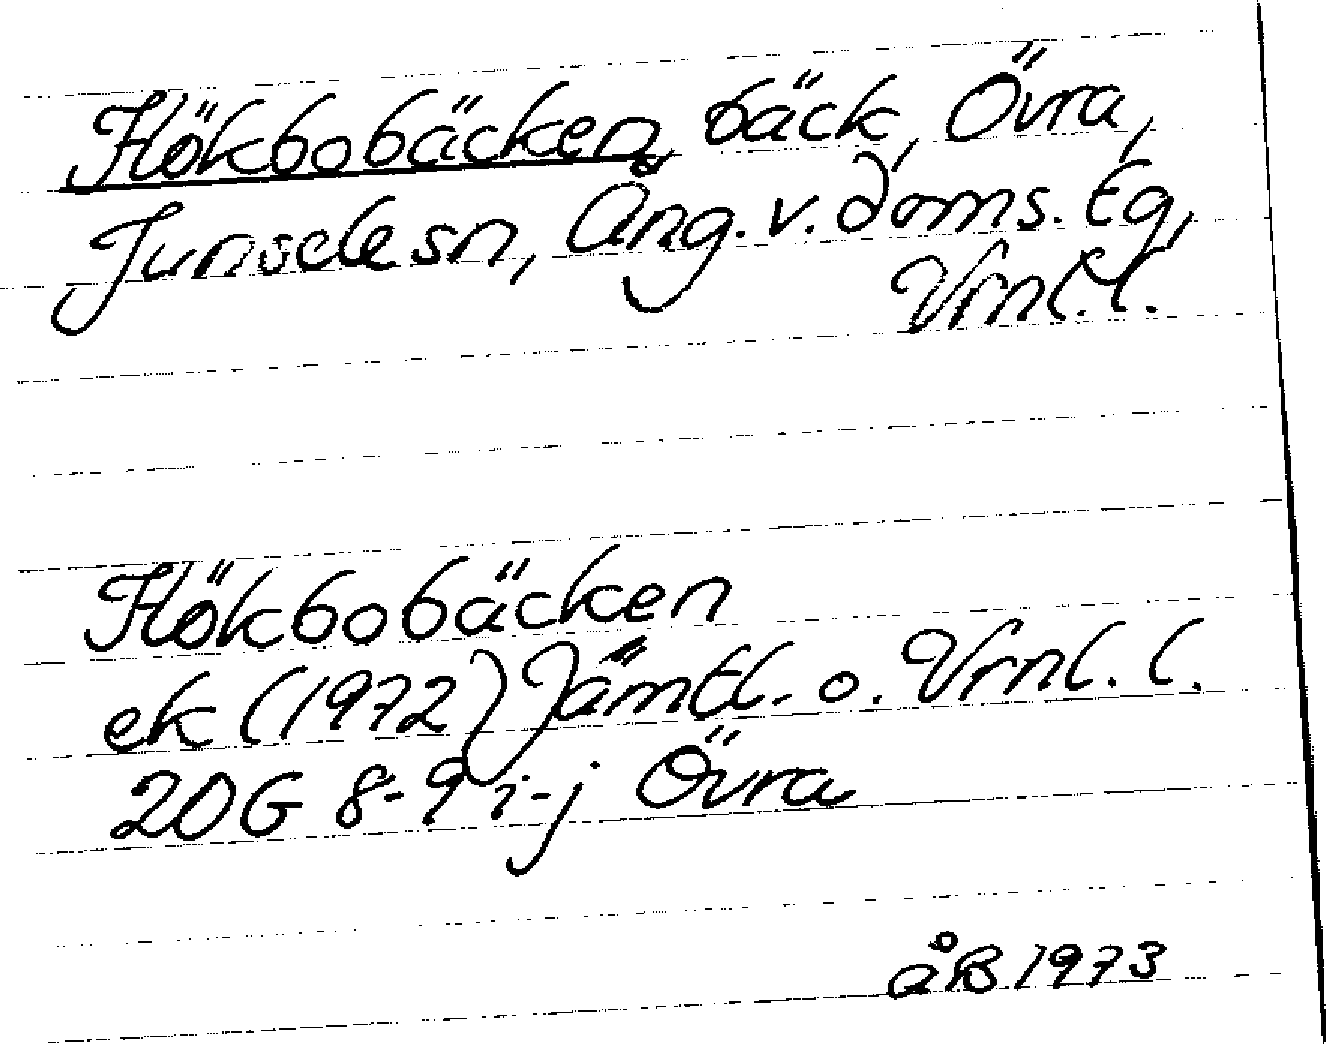 Hökbobäcken, bäck, Övra,
Junsele sn, Ång. v. doms. tg,
Vrnl. l.
Hökbobäcken
ek (1972) Jämtl. o. Vrnl. l.
20G 8-9 i-j Övra
åB 1973